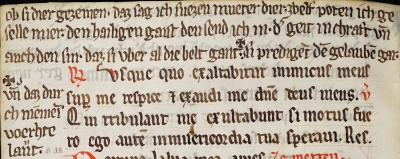 ob si dier gezemen. daz sag ich suezen mueter dier. zbelf poten ich ge
selle mier. den hailigen gaist den send ich in. d͛ geit in chraft vn̄
auch den sin. daz si vber al die belt gant. vn̄ prediget den gelauben
Vsque quo exaltabitur inimicus meus
sup me respice ⁊ exaudi me dn̄e deus meus.
Qui tribulant me exultabunt si motus fue
ro ego autē in misericordia tua speraui. Res.
vn̄ daz dur
ich niemen
voerhte